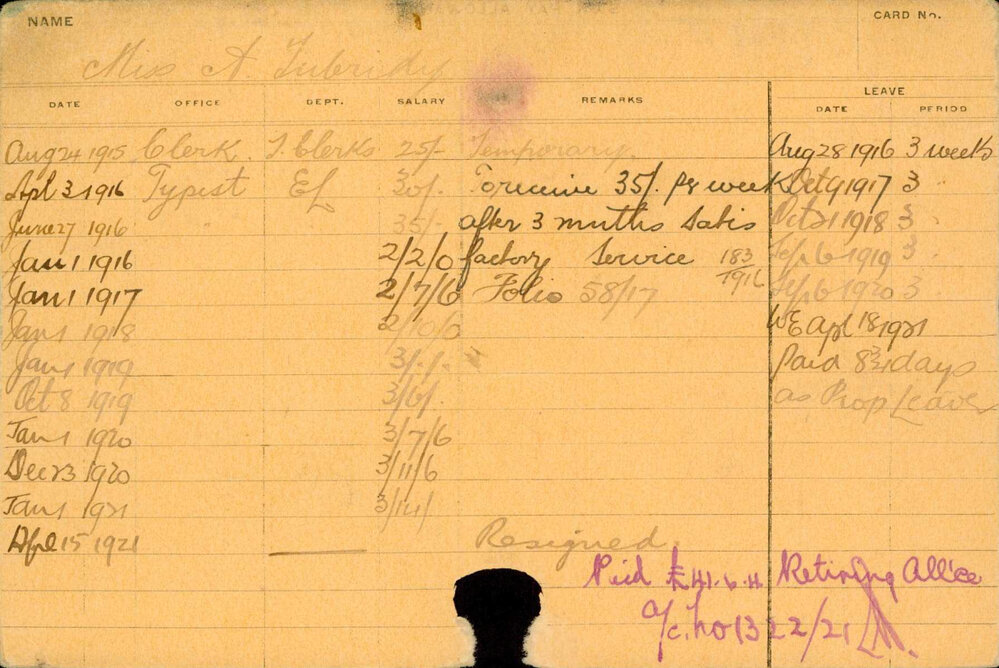 NAME CARD No.
Miss A. Tubridy
LEAVE
DATE OFFICE DEPT. SALARY REMARKS DATE PERIOD
Aug 24 1915 Clerk. T. Clerks 25/- Temporary. Aug 28 1916 3 weeks
Apl 3 1916 Typist EL 30/. To receive 35/. per week Oct 9 1917 3 "
June 27 1916 35/- after 3 months satis Oct 21 1918 3 "
Jan 1 1916 2/2/0 factory Service 183/1916 Sep 6 1919 3 "
Jan 1 1917 2/7/6 Folio 58/17 Sep 6 1920 3
Jan 1 1918 2/10/0 WE Apl 18 1921
Jan 1 1919 3/-/- Paid 8¾ days
Oct 8 1919 3/6/- as Prop Leave
Jan 1 1920 3/7/6
Dec 23 1920 3/11/6
Jan 1 1921 3/14/
Apl 15 1921 Resigned.
Paid £41.6.4 Retiring Allce
a/c. No 1322/21